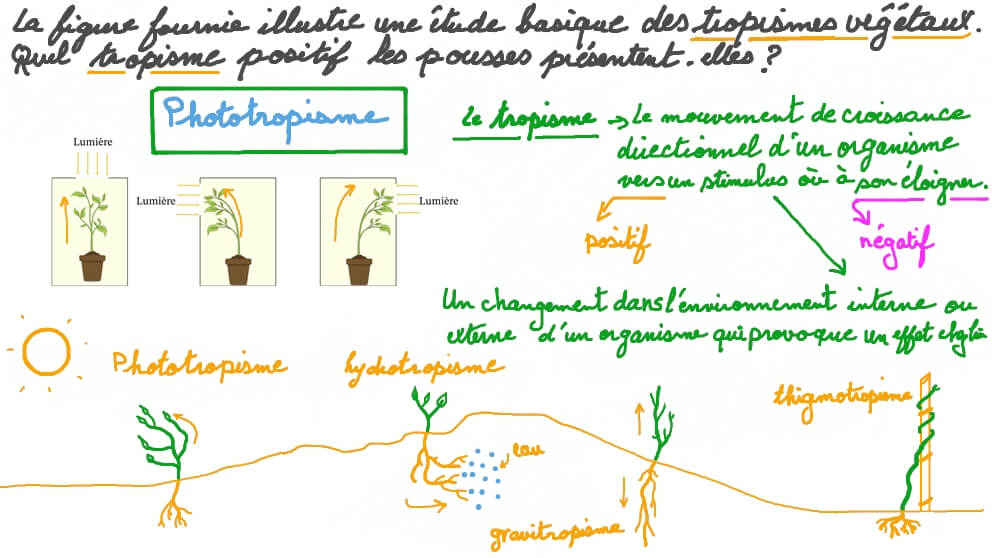 La figure fournie illustre une étude basique des tropismes végétaux.
Quel tropisme positif les pousses présentent-elles?
Phototropisme
Le tropisme → Le mouvement de croissance
directionnel d'un organisme
vers un stimulus où à son éloigner.
positif
négatif
Lumière
Lumière
Lumière
Un changement dans l'environnement interne ou
externe d'un organisme qui provoque un effet chez lui
Phototropisme
hydrotropisme
thigmotropisme
eau
gravitropisme